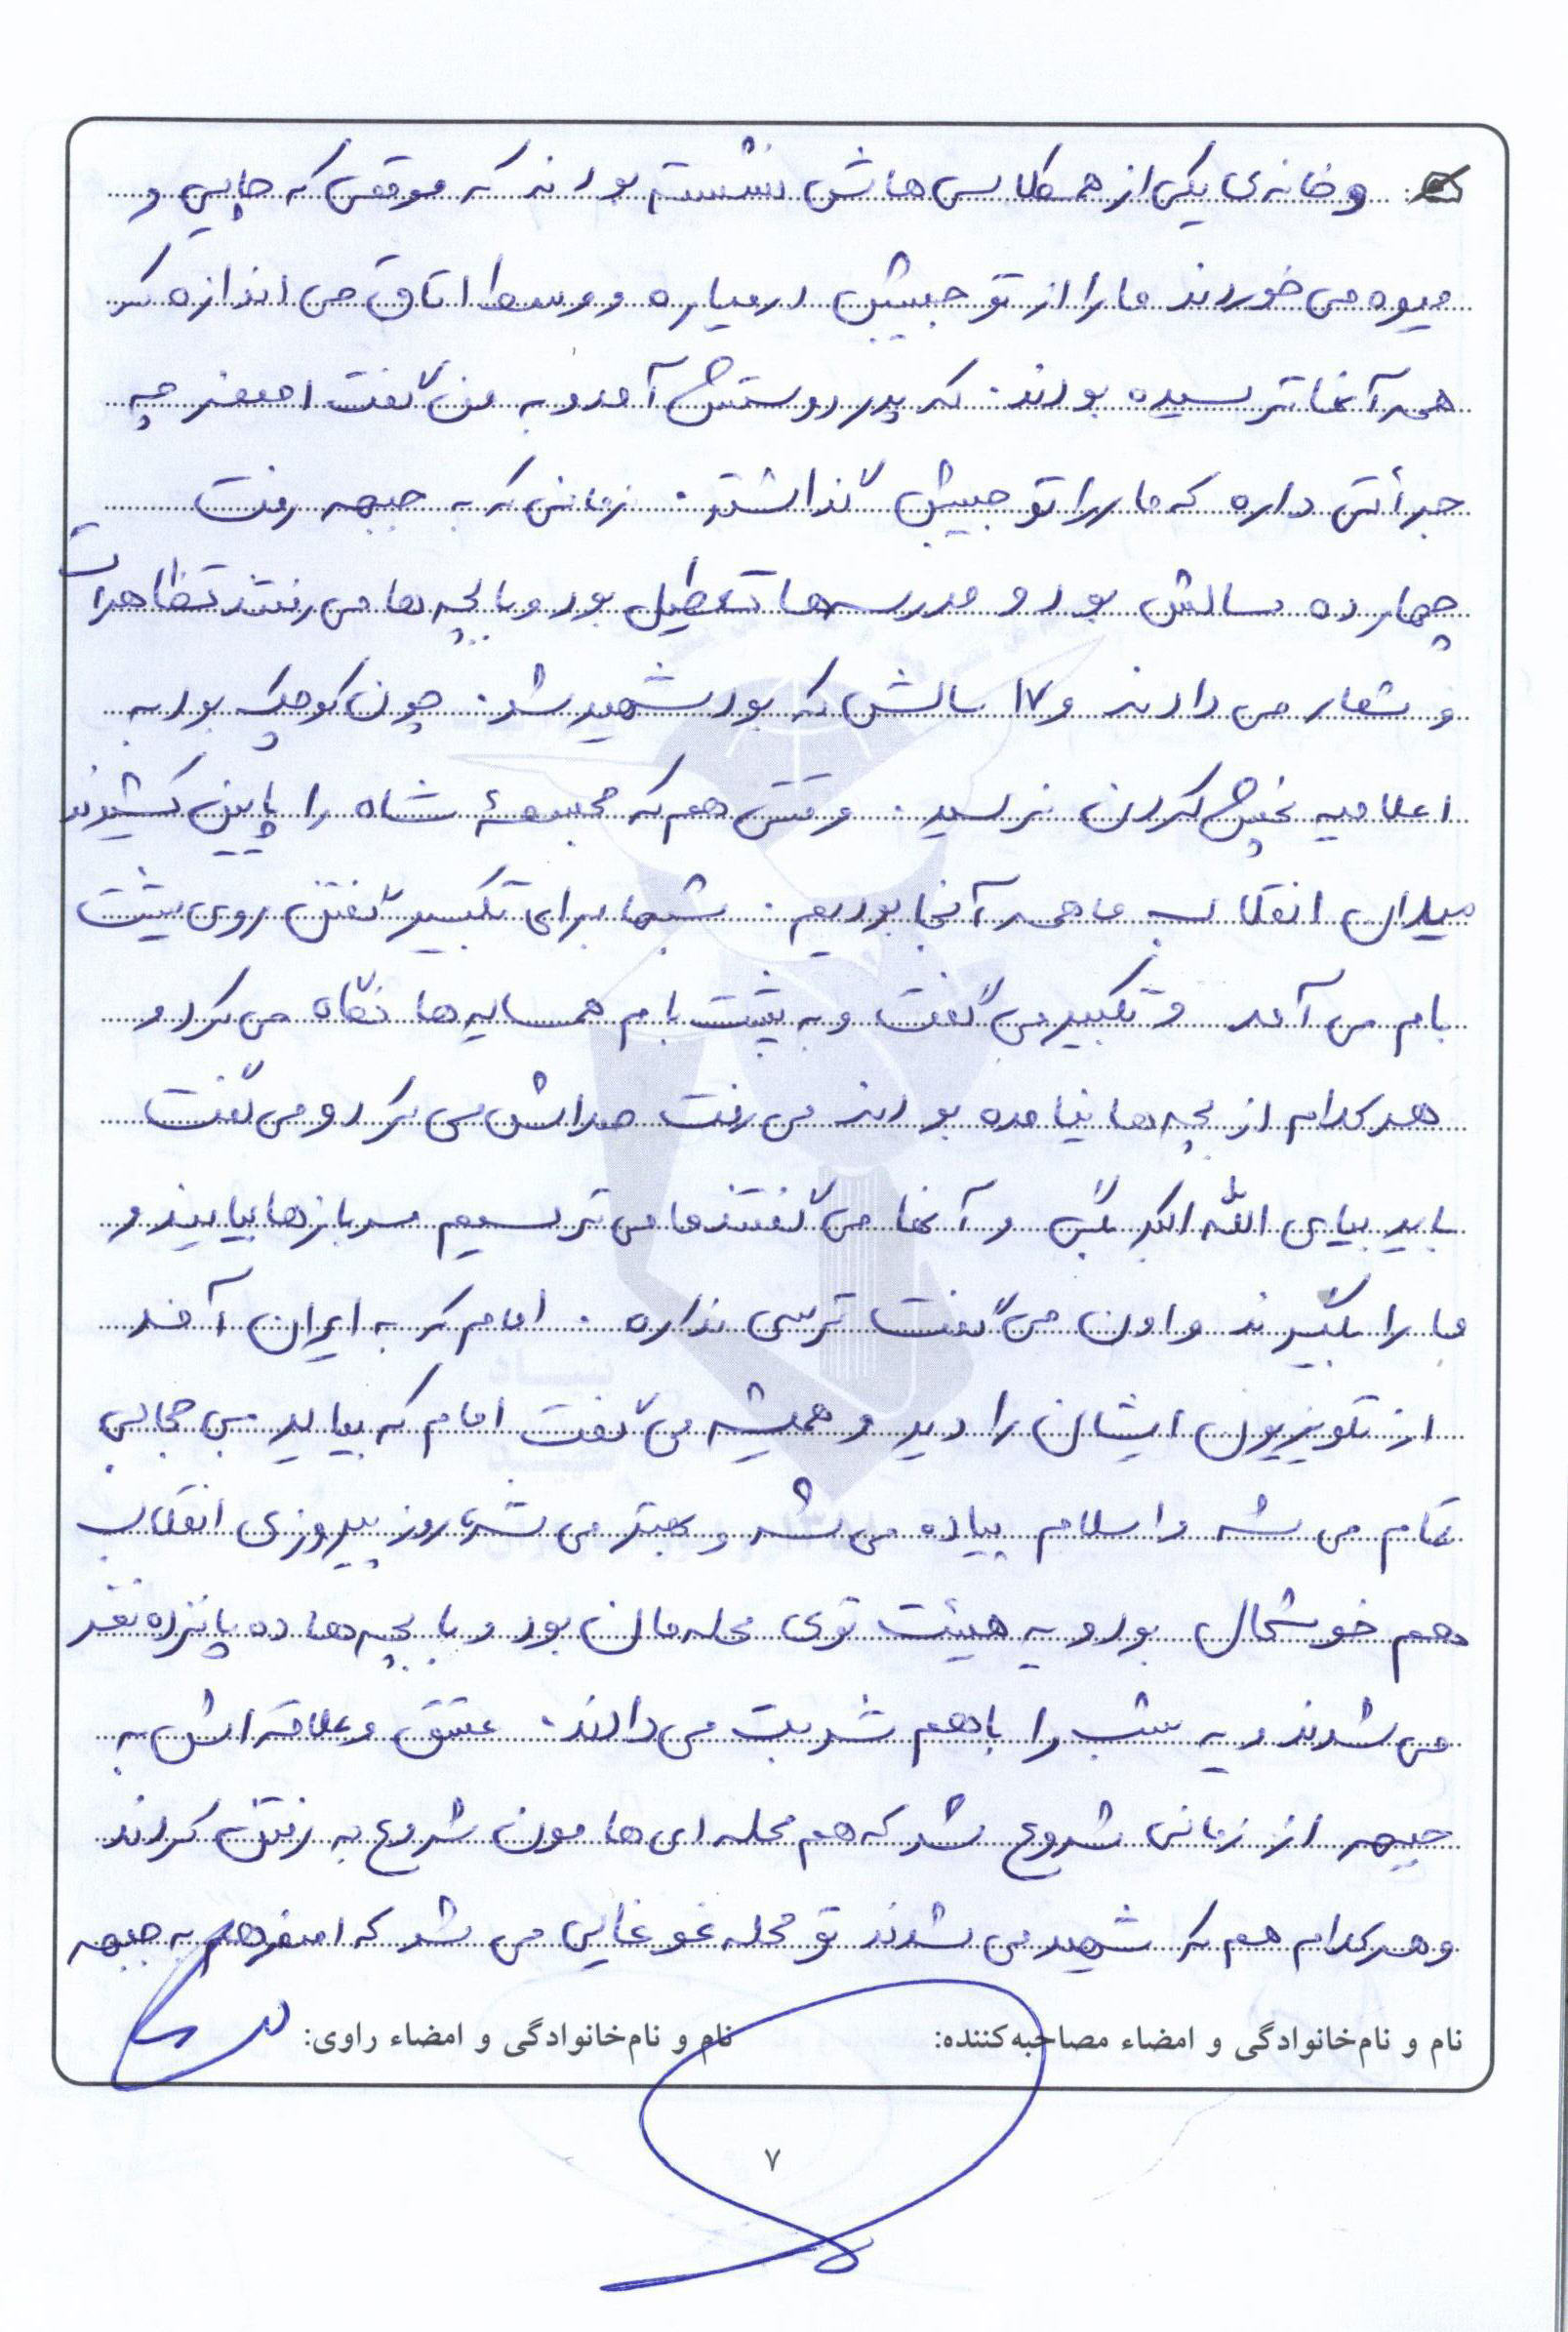 و خانه‌ی یکی از همکلاسی هاش نشسته بودند که موقعی که چایی و
میوه می خوردند مار را از تو جیبش درمیاره و وسط اتاق می اندازه که
همه آنها ترسیده بودند. که پدر دوستش آمد و به من گفت اصغر چه
جرأتی داره که مار را تو جیبش گذاشته. زمانی که به جبهه رفت
چهارده سالش بود و مدرسه ها تعطیل بود و با بچه ها می رفتند تظاهرات
و شعار می دادند و ۱۷ سالش که بود شهید شد. چون کوچک بود به
اعلامیه پخش کردن نرسید. وقتی هم که مجسمهٔ شاه را پایین کشیدند
میدان انقلاب ما همه آنجا بودیم. شبها برای تکبیر گفتن روی پشت
بام می آمد و تکبیر می گفت و به پشت بام همسایه ها نگاه می کرد و
هر کدام از بچه ها نیامده بودند می رفت صداش می کرد و می گفت
باید بیای الله اکبر بگی و آنها می گفتند ما می ترسیم سربازها بیایند و
ما را بگیرند و اون می گفت ترسی نداره. امام که به ایران آمد
از تلویزیون ایشان را دید و همیشه می گفت امام که بیاید بی حجابی
تمام می شه و اسلام پیاده می شه و بهتر می شه، روز پیروزی انقلاب
هم خوشحال بود و یه هیئت توی محله مان بود و با بچه ها ده پانزده نفر
می شدند و یه شب را با هم شربت می دادند. عشق و علاقه اش به
جبهه از زمانی شروع شد که هم محله ای هامون شروع به رفتن کردند
و هر کدام هم که شهید می شدند تو محله غوغایی می شد که اصغر هم به جبهه
نام و نام‌خانوادگی و امضاء مصاحبه‌کننده: نام و نام‌خانوادگی و امضاء راوی:
۷